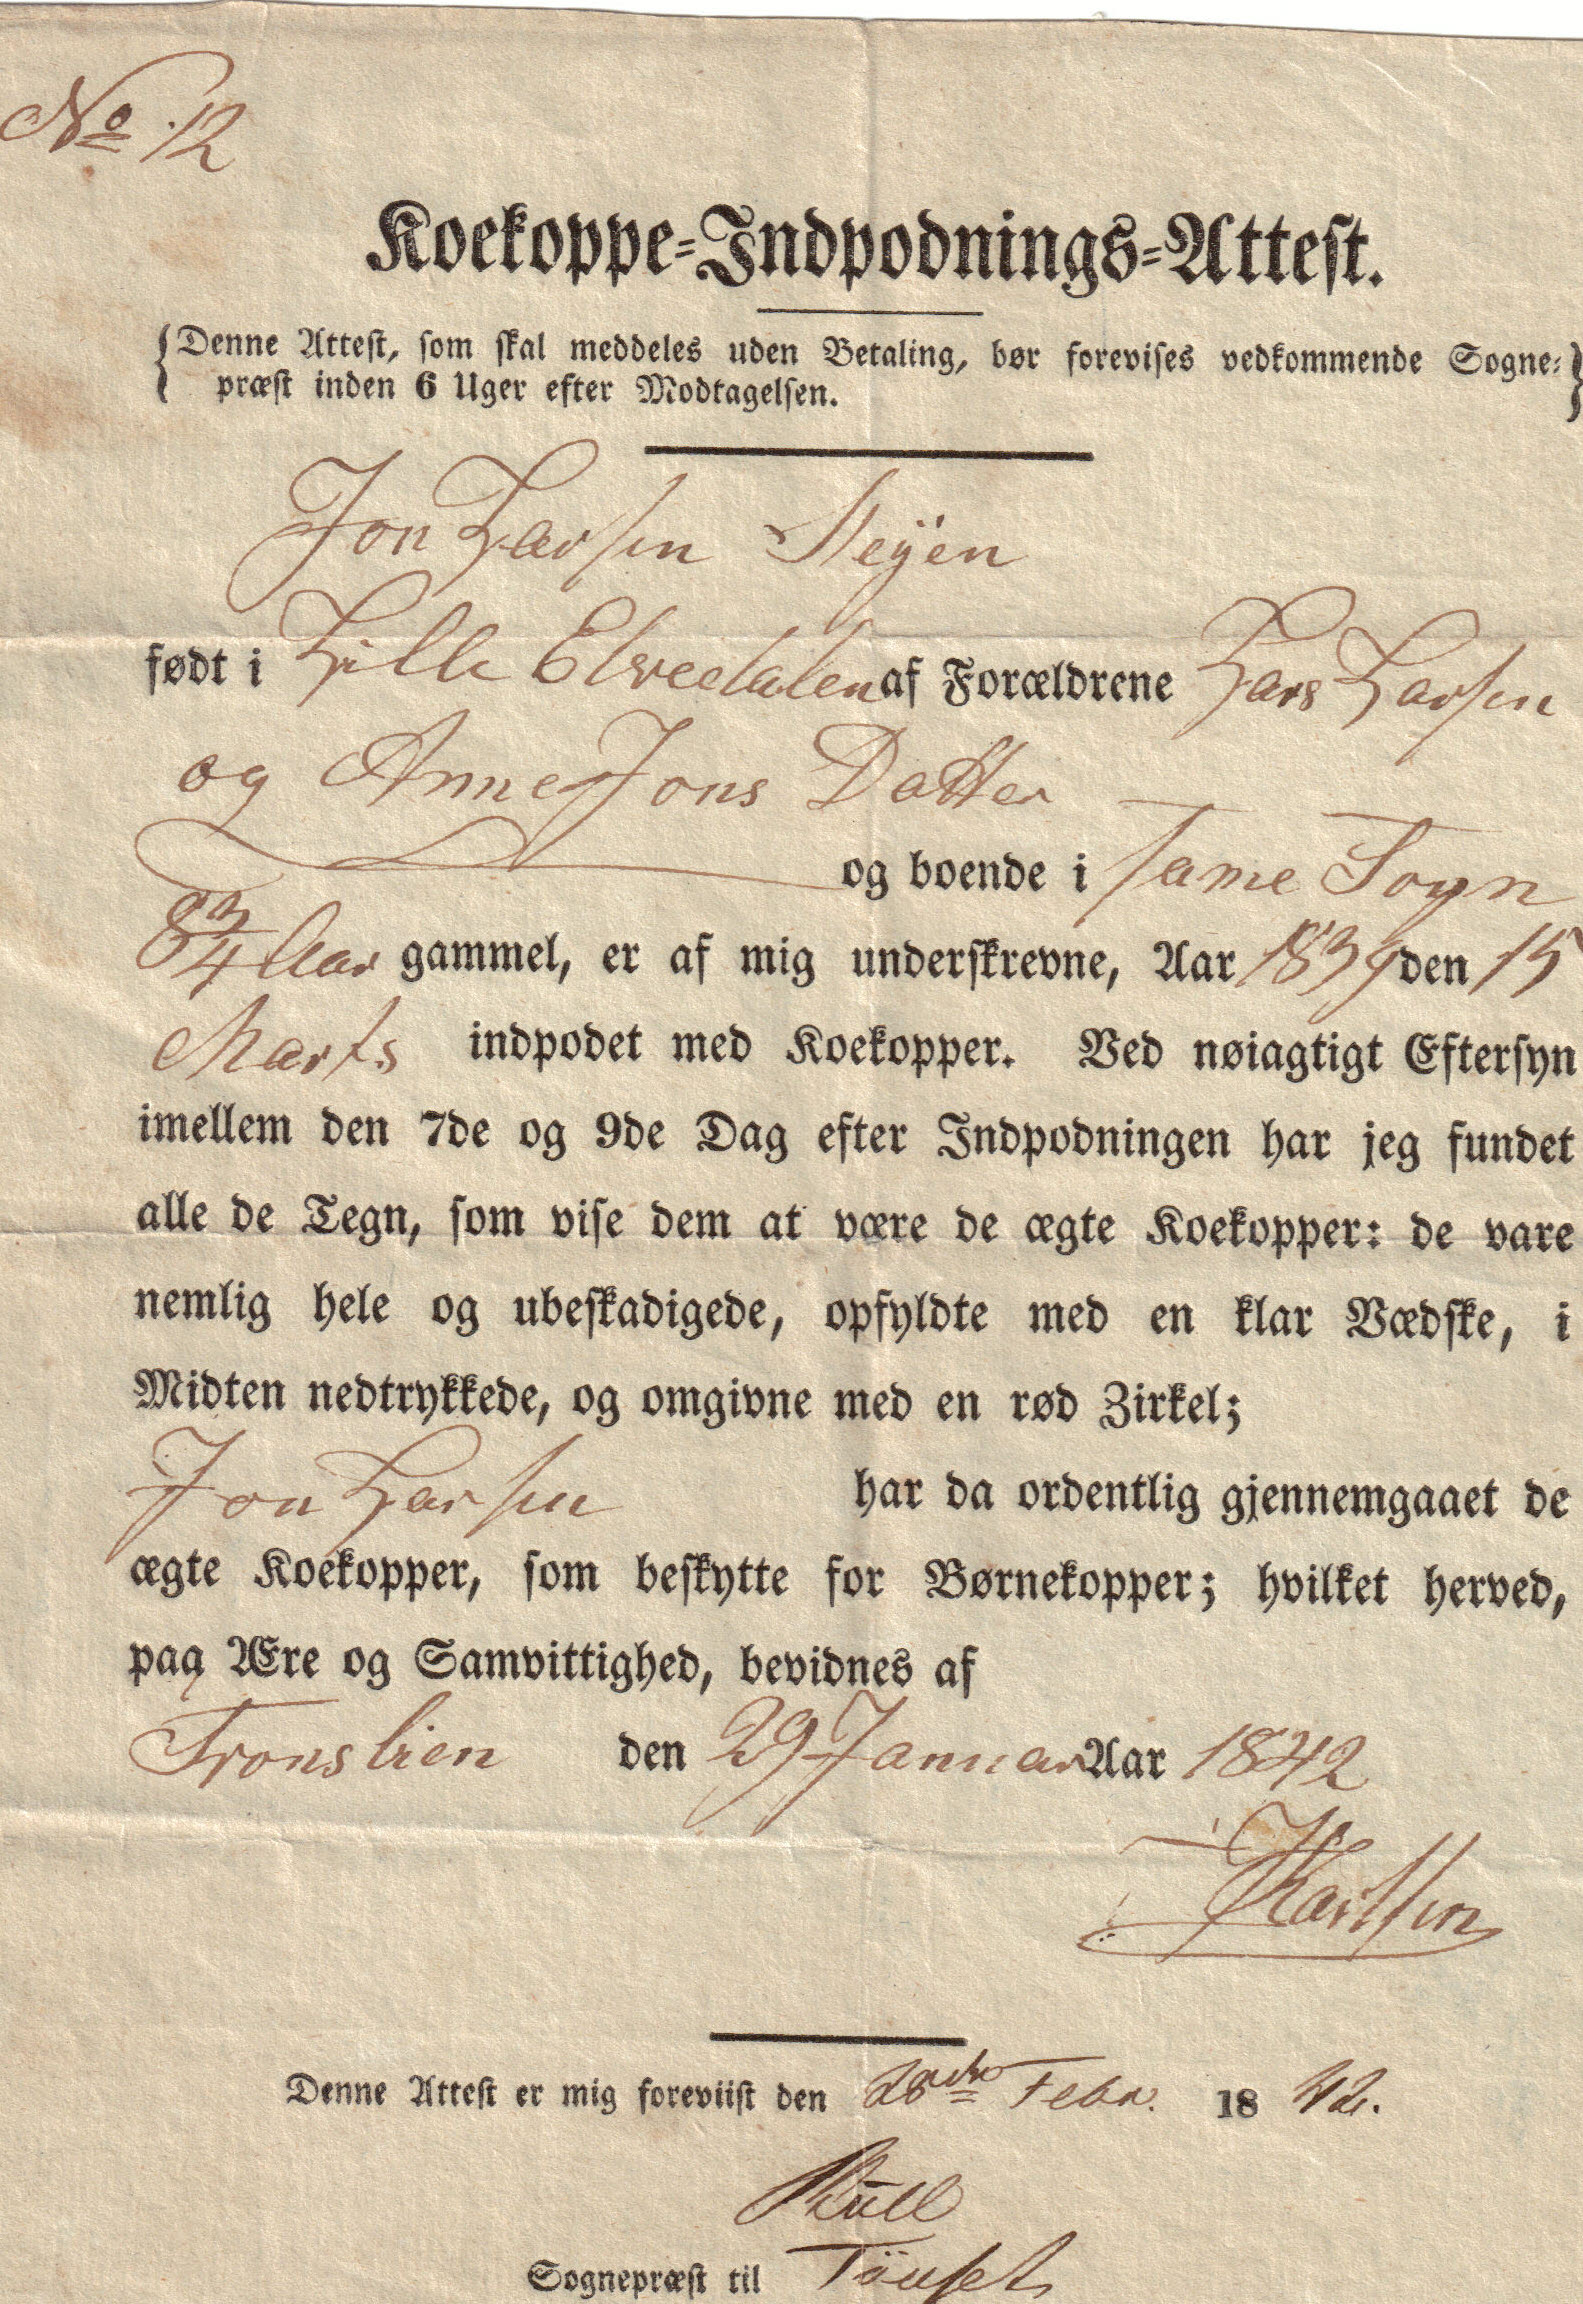 No 12
Koekoppe-Indpodnings-Attest.
Denne Attest, som skal meddeles uden Betaling, bør forevises vedkommende Sogne-
præst inden 6 Uger efter Modtagelsen.
Jon Larsen
født i Lille Elvedalen af Forældrene Lars Larsen
og Anne Jons Datter
og boende i same Sogn
8 3/4 Aar gammel, er af mig underskrevne, Aar 1839 den 15
Marts indpodet med Koekopper. Ved nøiagtigt Eftersyn
imellem den 7de og 9de Dag efter Indpodningen har jeg fundet
alle de Tegn, som vise dem at være de ægte Koekopper: de vare
nemlig hele og ubeskadigede, opfyldte med en klar Vædske, i
Midten nedtrykkede, og omgivne med en rød Zirkel;
Jon Larsen har da ordentlig gjennemgaaet de
ægte Koekopper, som beskytte for Børnekopper; hvilket herved,
paa Ære og Samvittighed, bevidnes af
Tronslien den 29 Januar Aar 1842
Denne Attest er mig foreviist den Febr. 18 42.
Sognepræst til Tönset